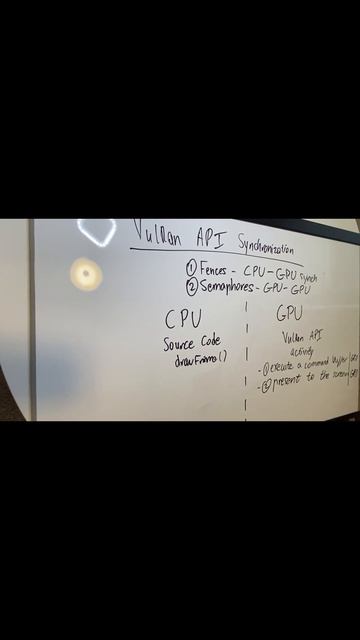 Vulkan API Synchronization
① Fences - CPU-GPU synch
② Semaphores - GPU-GPU
CPU
Source Code
drawFrame()
GPU
Vulkan API
activity
- ① execute a command buffer
- ② present to the screen